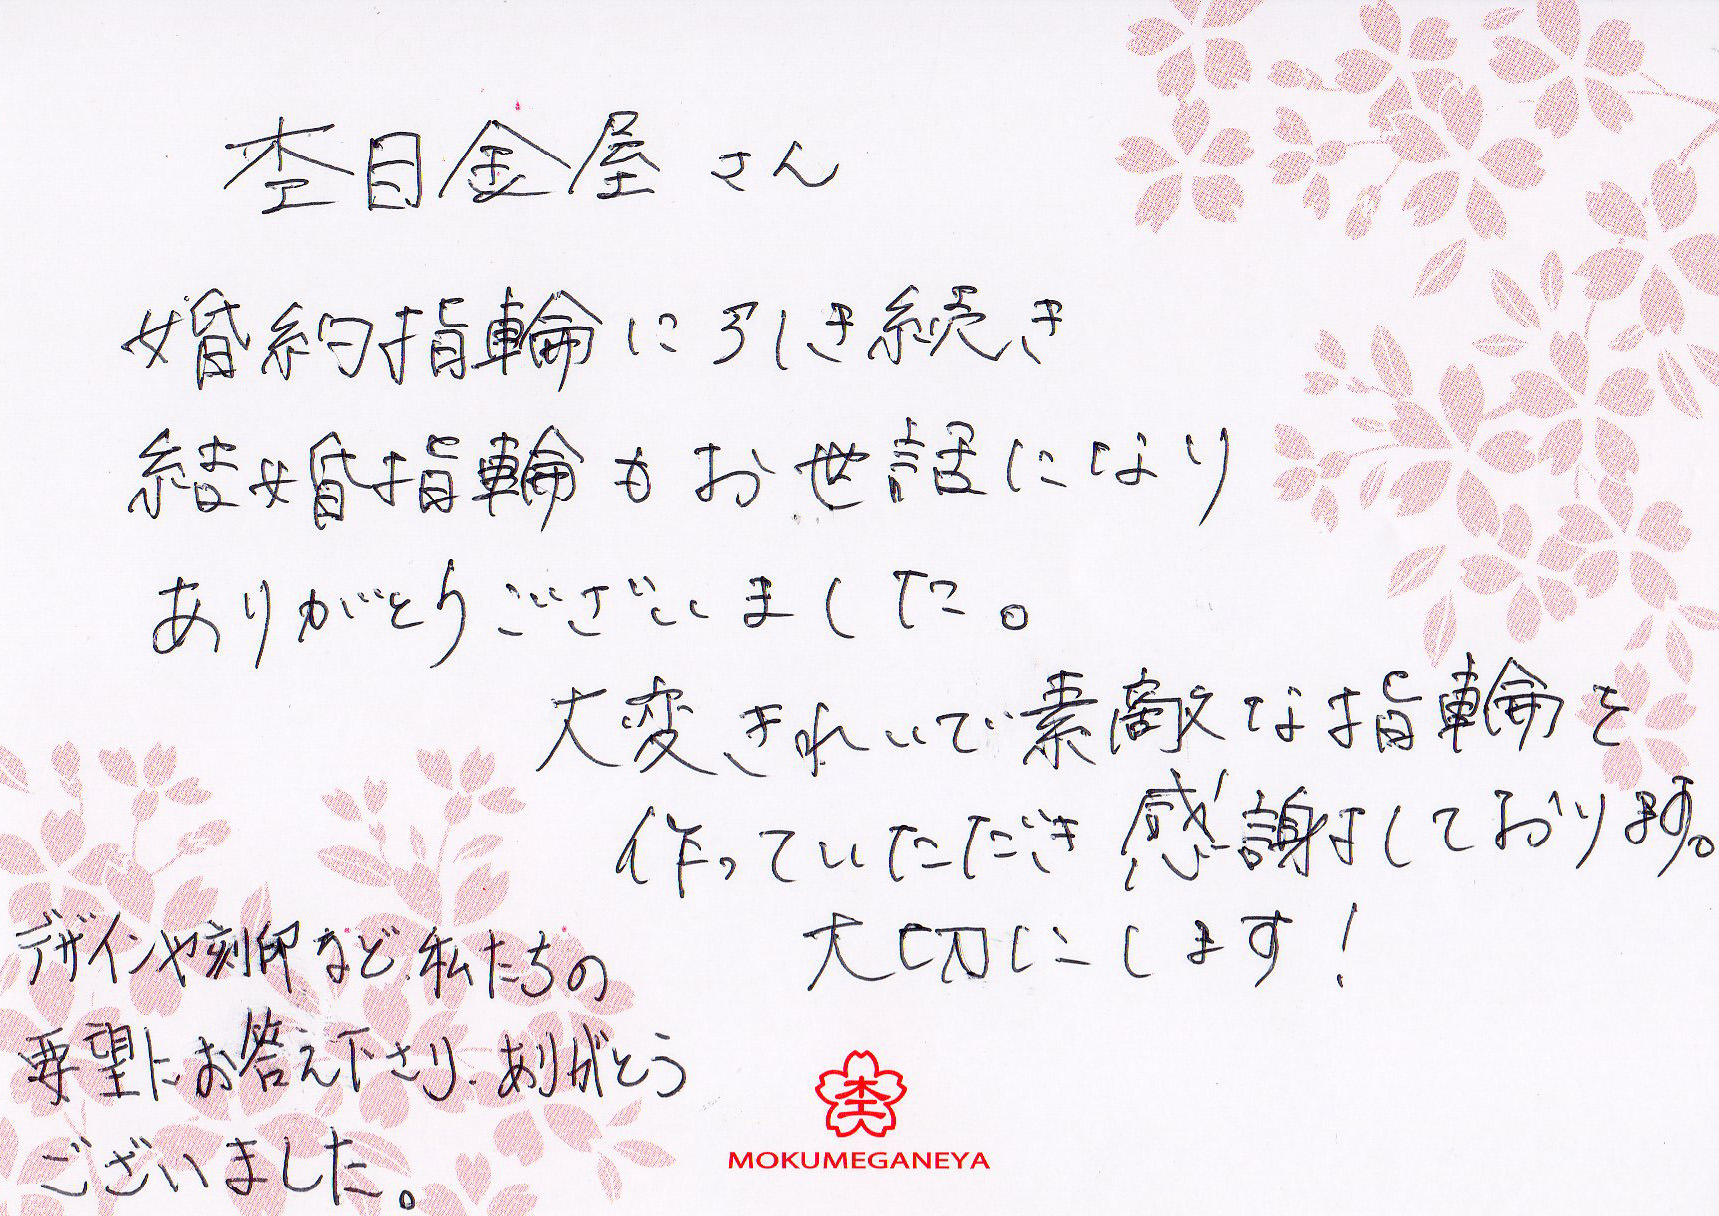 杢目金屋さん
婚約指輪に引き続き
結婚指輪もお世話になり
ありがとうございました。
大変きれいで素敵な指輪を
作っていただき感謝しております。
大切にします!
デザインや刻印など、私たちの
要望にお答え下さり、ありがとう
ございました。
杢
MOKUMEGANEYA